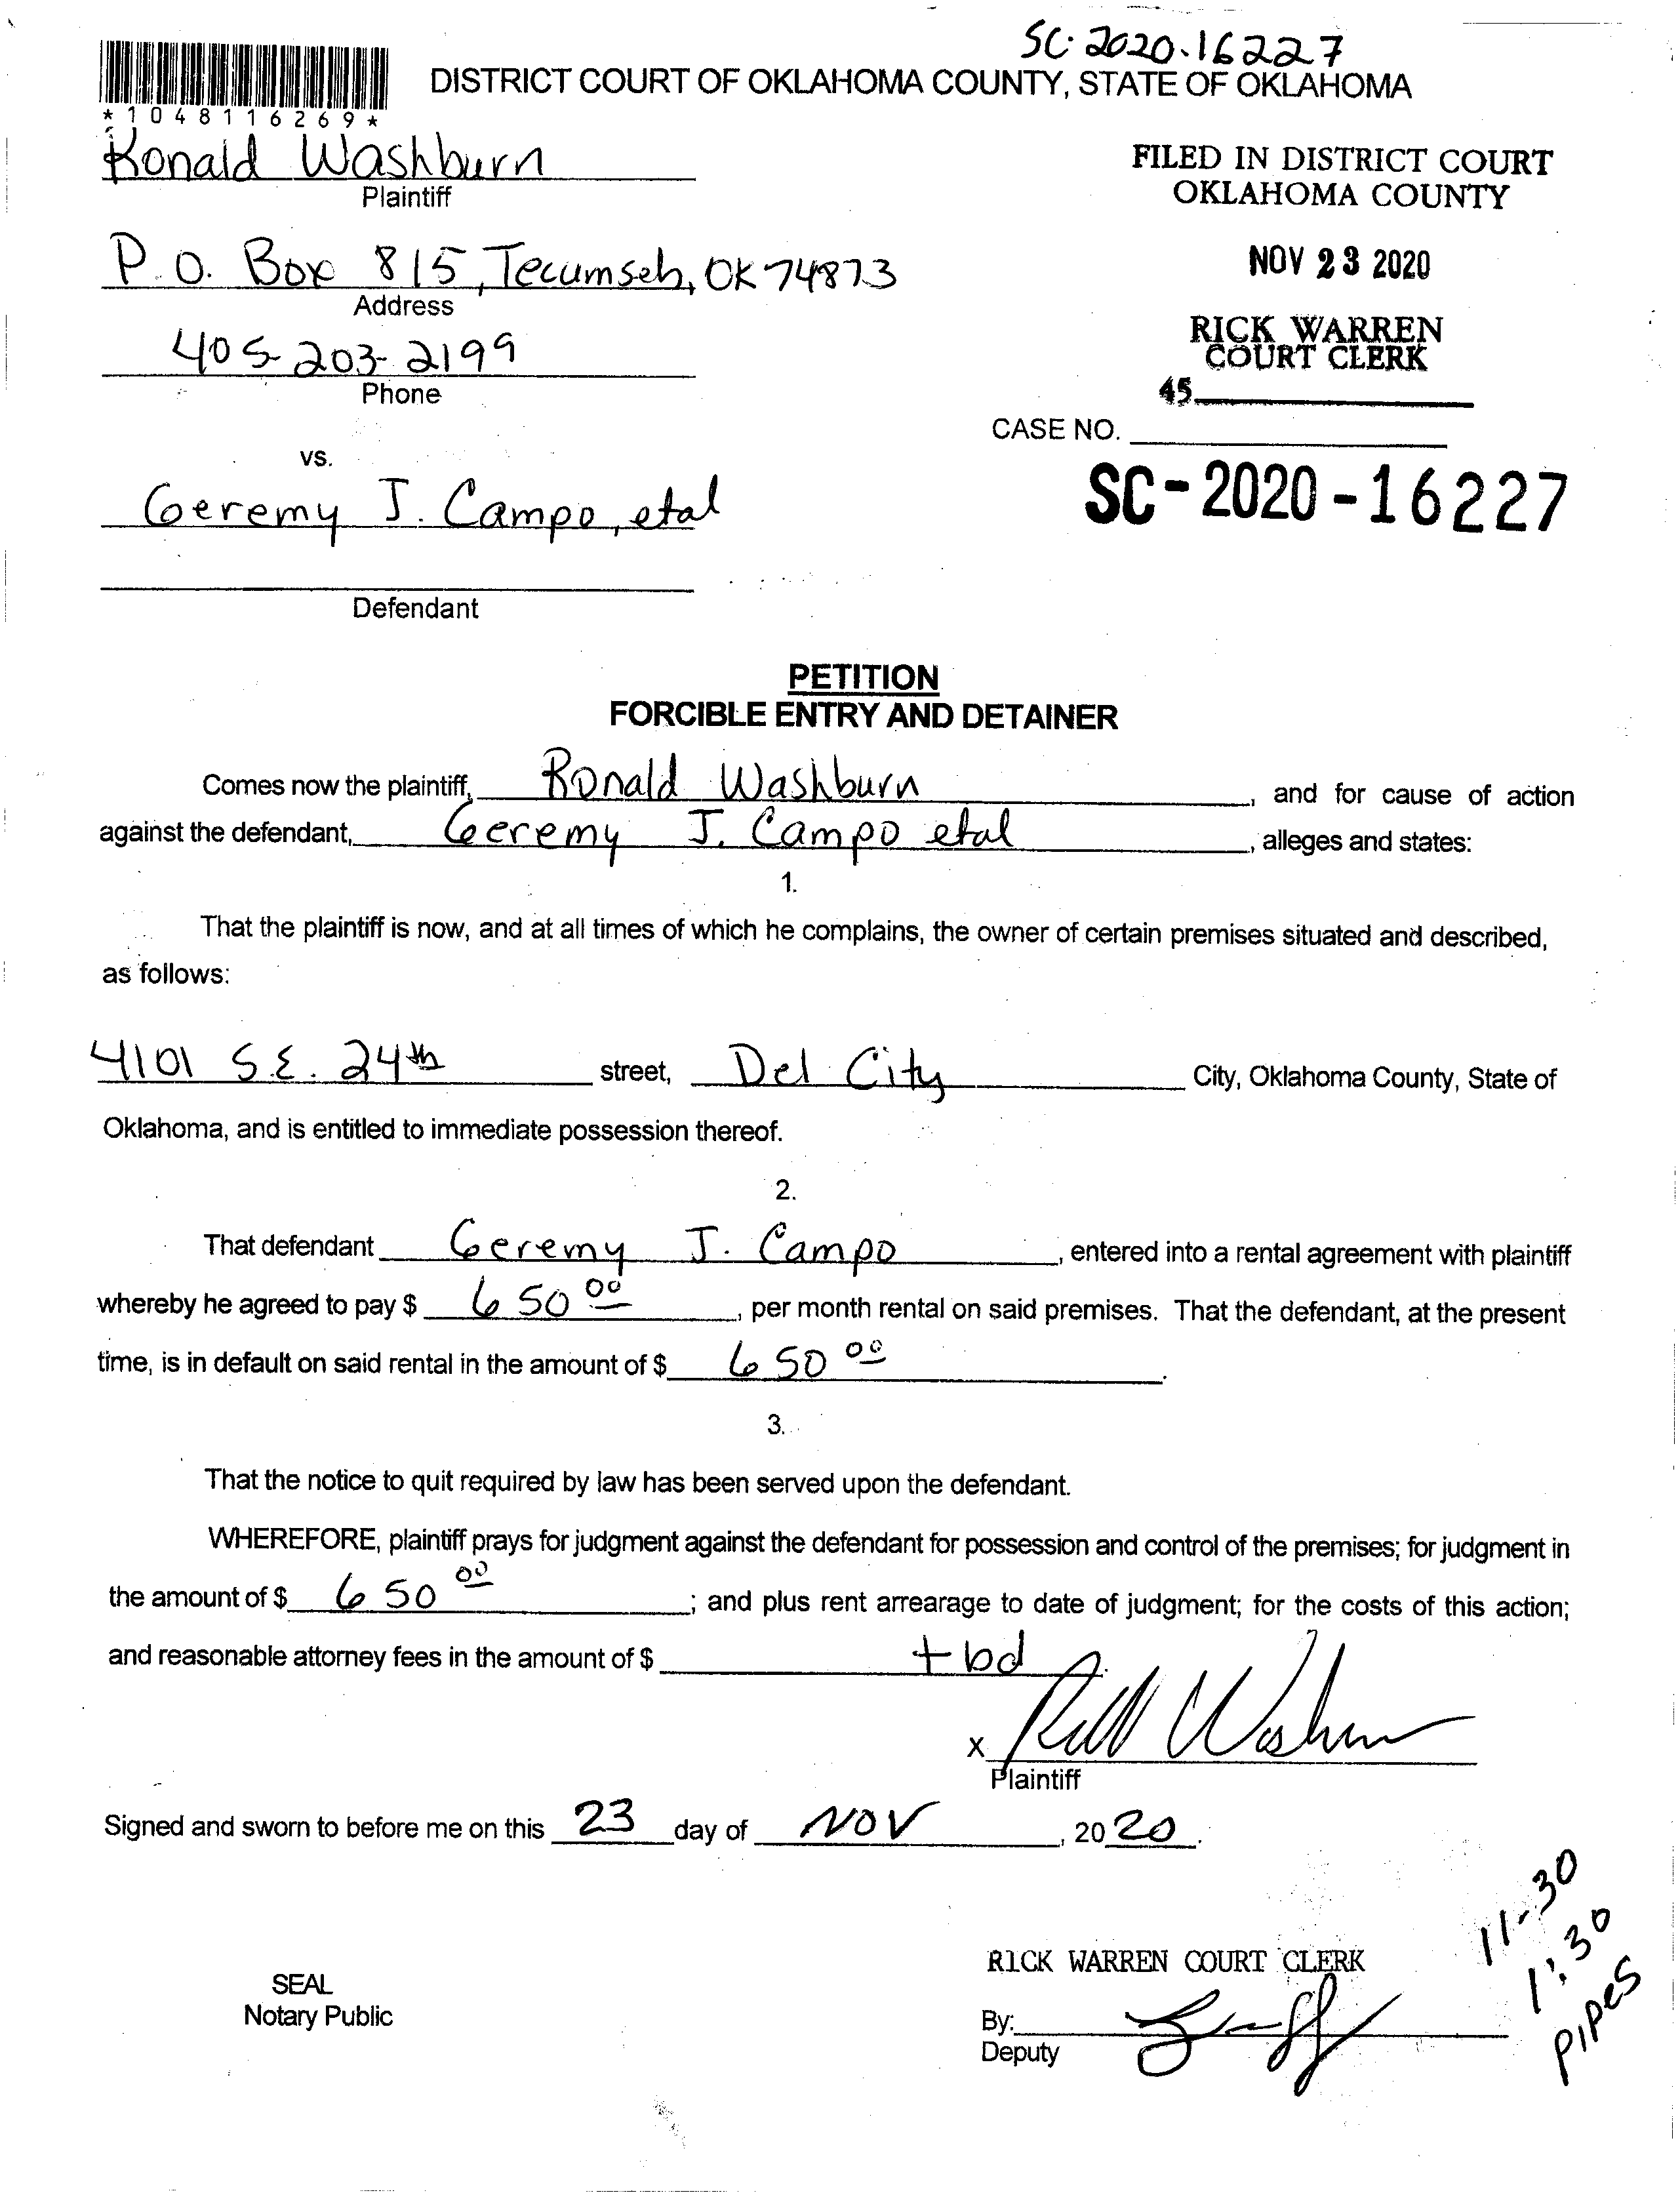 SC-2020-16227
DISTRICT COURT OF OKLAHOMA COUNTY, STATE OF OKLAHOMA
*1048116269*
Ronald Washburn
Plaintiff
FILED IN DISTRICT COURT
OKLAHOMA COUNTY
P.O. Box 815, Tecumseh, OK 74873
Address
NOV 23 2020
405-203-2199
Phone
RICK WARREN
COURT CLERK
45
CASE NO.
vs.
SC-2020-16227
Geremy J. Campo, etal
Defendant
PETITION
FORCIBLE ENTRY AND DETAINER
Comes now the plaintiff, Ronald Washburn, and for cause of action
against the defendant, Geremy J. Campo etal, alleges and states:
1.
That the plaintiff is now, and at all times of which he complains, the owner of certain premises situated and described,
as follows:
4101 S.E. 24th street, Del City City, Oklahoma County, State of
Oklahoma, and is entitled to immediate possession thereof.
2.
That defendant Geremy J. Campo, entered into a rental agreement with plaintiff
whereby he agreed to pay $ 650 00, per month rental on said premises. That the defendant, at the present
time, is in default on said rental in the amount of $ 650 00.
3.
That the notice to quit required by law has been served upon the defendant.
WHEREFORE, plaintiff prays for judgment against the defendant for possession and control of the premises; for judgment in
the amount of $ 650 00; and plus rent arrearage to date of judgment; for the costs of this action;
and reasonable attorney fees in the amount of $ tbd.
x
Plaintiff
Signed and sworn to before me on this 23 day of NOV, 2020.
11-30
1:30
PIPES
RICK WARREN COURT CLERK
SEAL
Notary Public
By:
Deputy